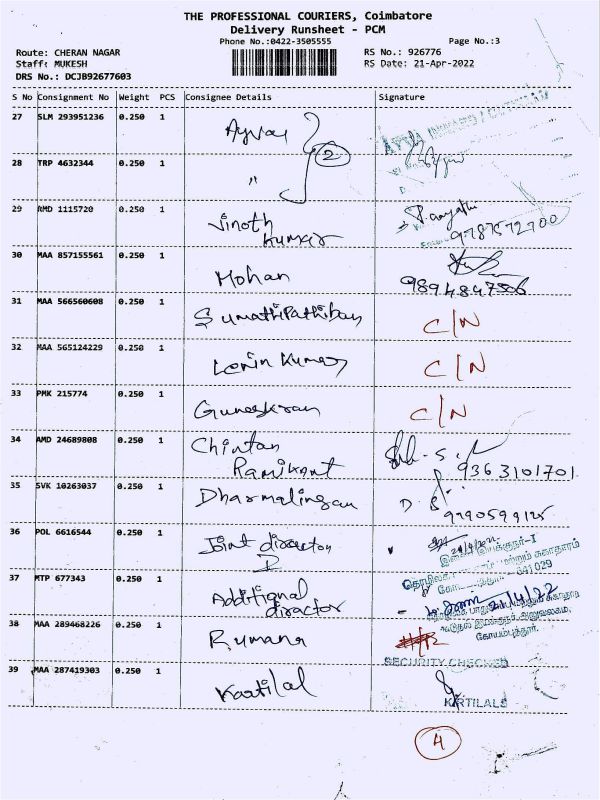 THE PROFESSIONAL COURIERS, Coimbatore
Delivery Runsheet - PCM
Phone No.:0422-3505555 Page No.:3
Route: CHERAN NAGAR RS No.: 926776
Staff: MUKESH RS Date: 21-Apr-2022
DRS No.: DCJB92677603
S No Consignment No Weight PCS Consignee Details Signature
27 SLM 293951236 0.250 1
28 TRP 4632344 0.250 1 " 2
29 RMD 1115720 0.250 1 Vinoth
Kumar 9787572700
30 MAA 857155561 0.250 1 Mohan 9894847506
31 MAA 566560608 0.250 1 Sumathi Pathiban C/N
32 MAA 565124229 0.250 1 Lenin Kumar C/N
33 PMK 215774 0.250 1 C/N
34 AMD 24689808 0.250 1 Chintan
Ramikant 9363101701
35 SVK 10263037 0.250 1 Dharmalingam
36 POL 6616544 0.250 1 Joint director
641 029
37 MTP 677343 0.250 1 Additional
director 21/4/22
கோயம்புத்தூர்.
38 MAA 289468226 0.250 1 Rumana
SECURITY CHECKED
39 MAA 287419303 0.250 1 Kartilal
KIRTILALS
4